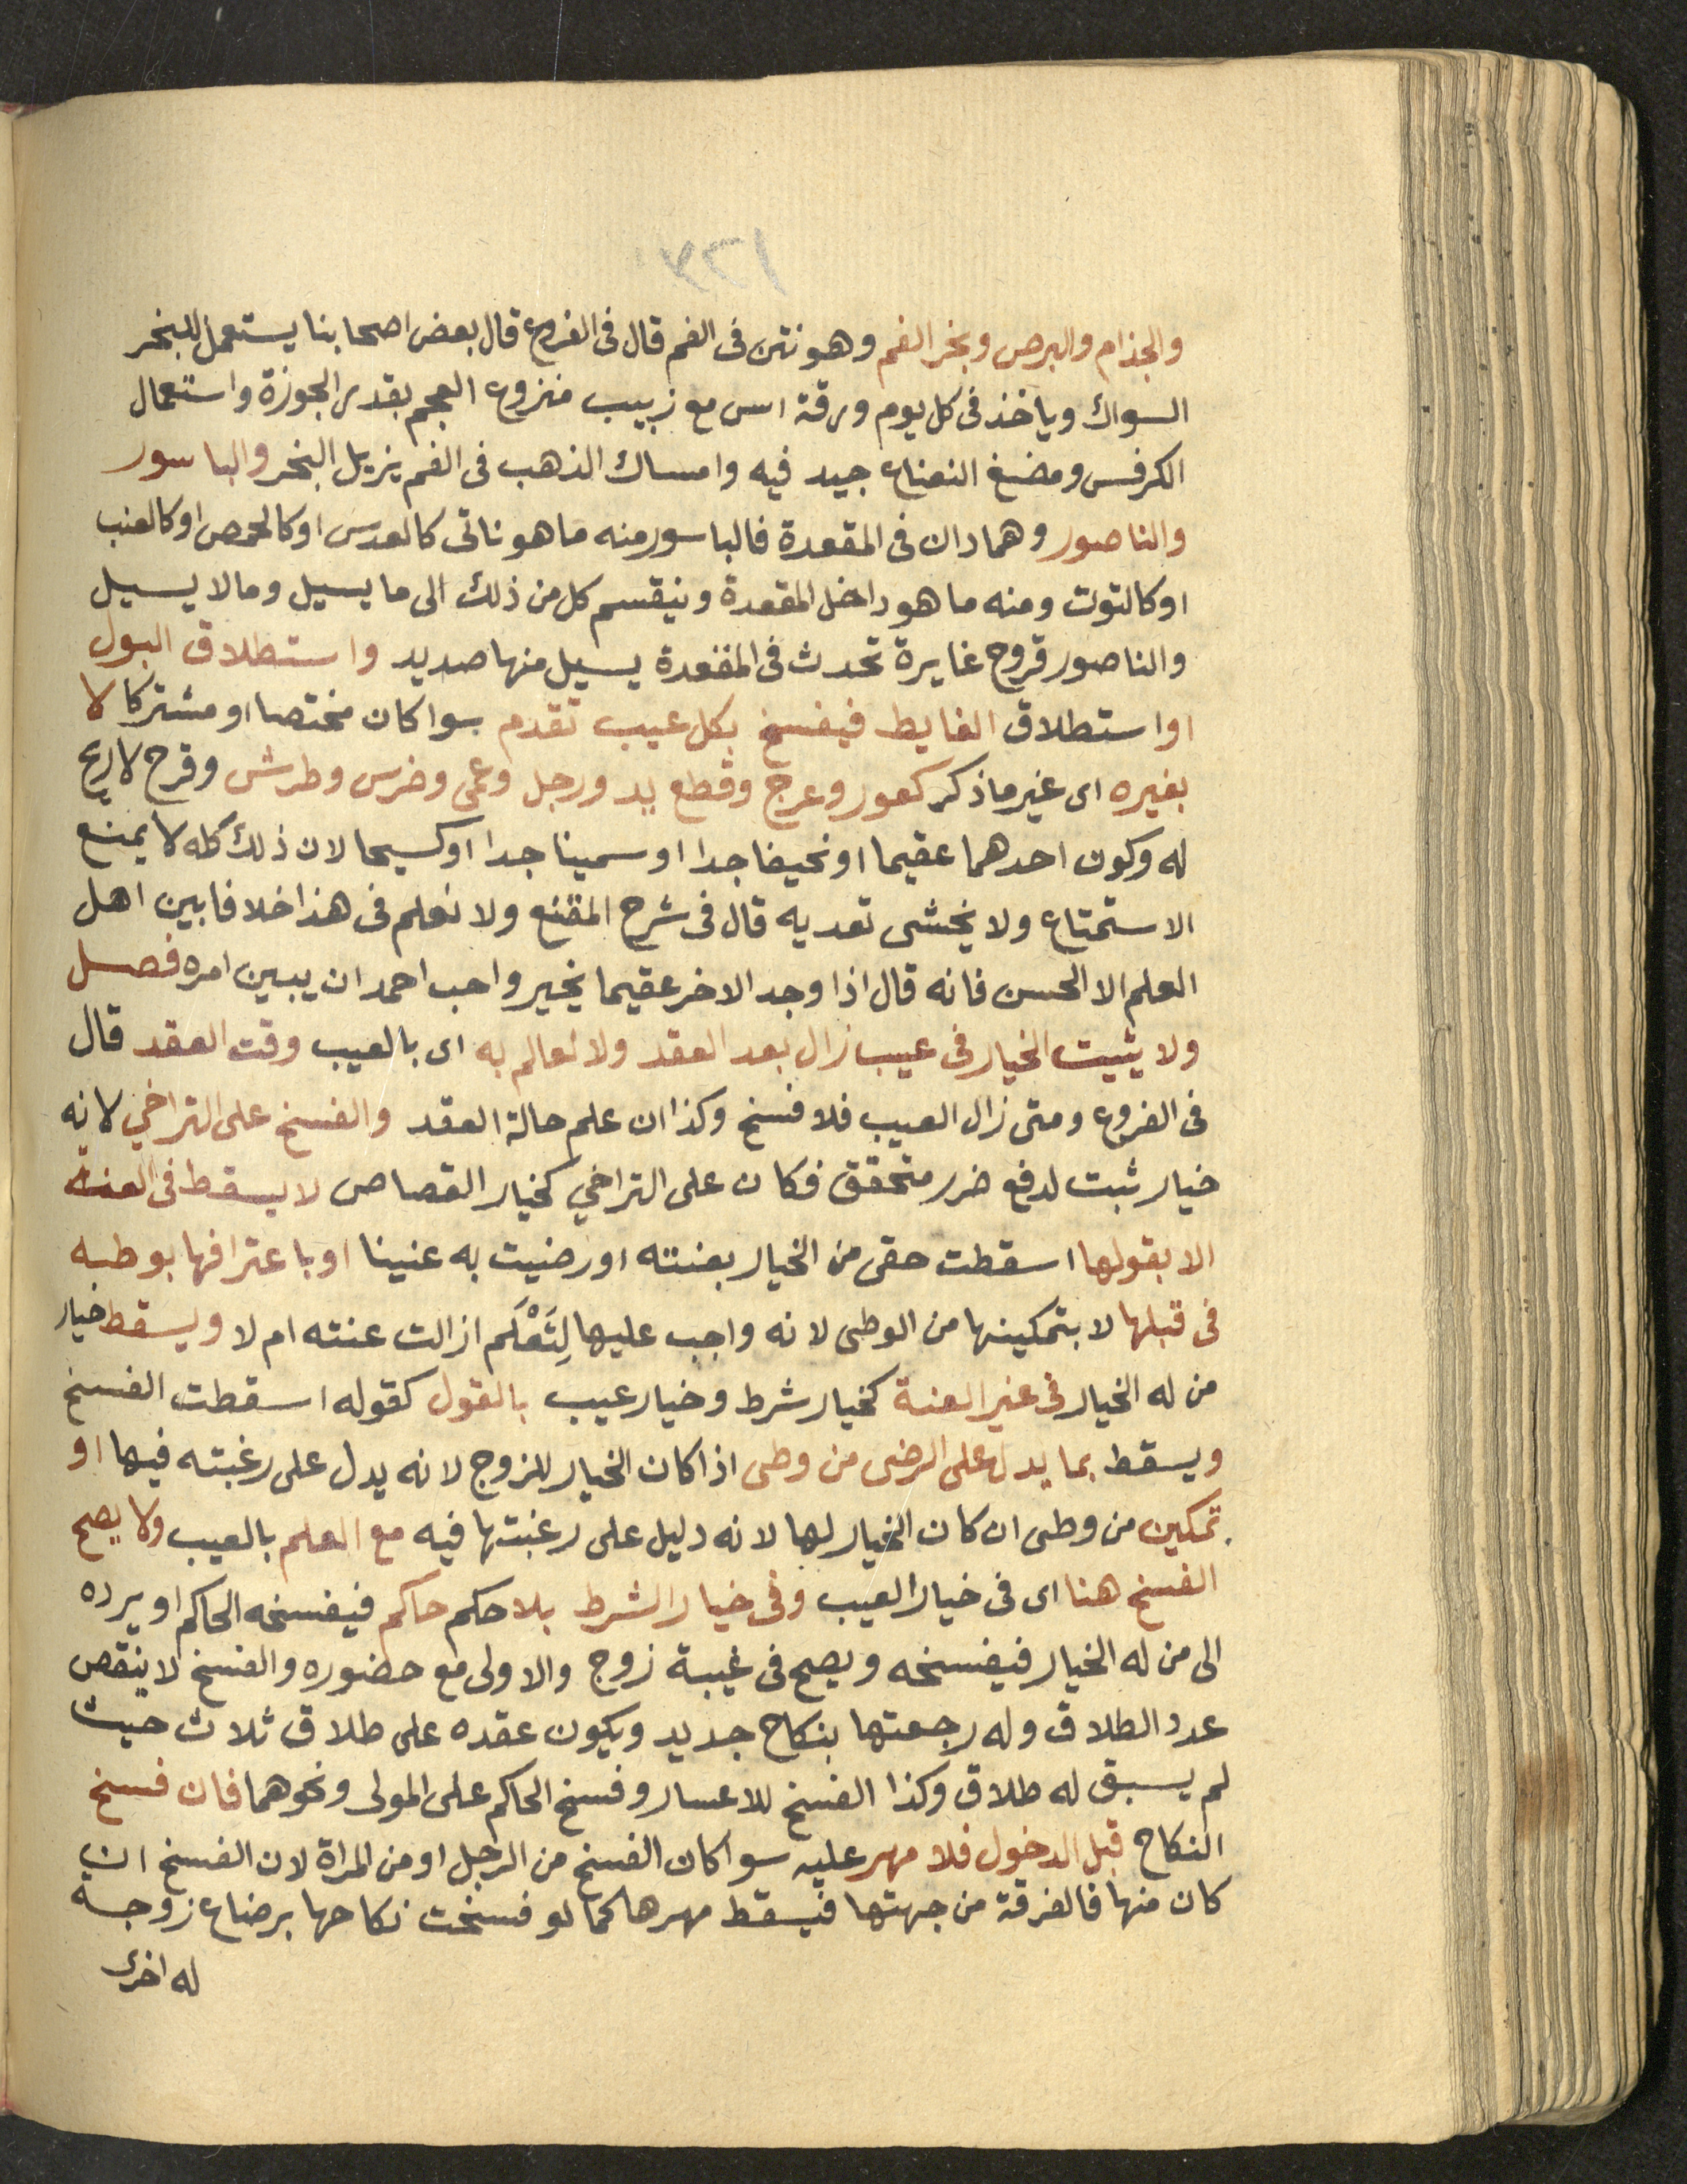 ١٢٧
والجذام والبرص وبخر الفم وهو نتن فى الفم قال فى الفروع قال بعض اصحابنا يستعمل للبخر
السواك وياخذ فى كل يوم ورقة اس مع زبيب منزوع العجم بقدر الجوزة واستعمال
الكرفس ومضغ النعناع جيد فيه وامساك الذهب فى الفم يزيل البخر والباسور
والناصور وهما دان فى المقعدة فالباسور منه ما هو ناتى كالعدس او كالحمص او كالعنب
او كالتوت ومنه ما هو داخل المقعدة وينقسم كل من ذلك الى ما يسيل وما لا يسيل
والناصور قروح غايرة تحدث فى المقعدة يسيل منها صديد واستطلاق البول
او استطلاق الغايط فيفسخ بكل عيب تقدم سوا كان مختصا او مشتركا لا
بغيره اى غير ما ذكر كعور وعرج وقطع يد ورجل وعمى وخرس وطرش وقرح لا ريح
له وكون احدهما عقيما او نحيفا جدا او سمينا جدا او كسيحا لان ذلك كله لا يمنع
الاستمتاع ولا يخشى تعديه قال فى شرح المقنع ولا نعلم فى هذا خلافا بين اهل
العلم الا الحسن فانه قال اذا وجد الاخر عقيما يخير واحب احمد ان يبين امره فصل
ولا يثبت الخيار فى عيب زال بعد العقد ولا لعالم به اى بالعيب وقت العقد قال
فى الفروع ومتى زال العيب فلا فسخ وكذا ان علم حالة العقد والفسخ على التراخي لانه
خيار ثبت لدفع ضرر متحقق فكان على التراخي كخيار القصاص لا يسقط فى العنة
الا بقولها اسقطت حقى من الخيار بعنته او رضيت به عنينا او باعترافها بوطيه
فى قبلها لا بتمكينها من الوطى لانه واجب عليها لِتَعْلَم ازالت عنته ام لا ويسقط خيار
من له الخيار فى غير العنة كخيار شرط وخيار عيب بالقول كقوله اسقطت الفسخ
ويسقط بما يدل على الرضى من وطى اذا كان الخيار للزوج لانه يدل على رغبته فيها او
تمكين من وطى ان كان الخيار لها لانه دليل على رغبتها فيه مع العلم بالعيب ولا يصح
الفسخ هنا اى فى خيار العيب وفى خيار الشرط بلا حكم حاكم فيفسخه الحاكم او يرده
الى من له الخيار فيفسخه ويصح فى غيبة زوج والاولى مع حضوره والفسخ لا ينقص
عدد الطلاق وله رجعتها بنكاح جديد ويكون عقده على طلاق ثلاث حيث
لم يسبق له طلاق وكذا الفسخ للاعسار وفسخ الحاكم على المولى ونحوهما فان فسخ
النكاح قبل الدخول فلا مهر عليه سوا كان الفسخ من الرجل او من المراة لان الفسخ ان
كان منها فالفرقة من جهتها فيسقط مهرها كما لو فسخت نكاحها برضاع زوجة
له اخرى